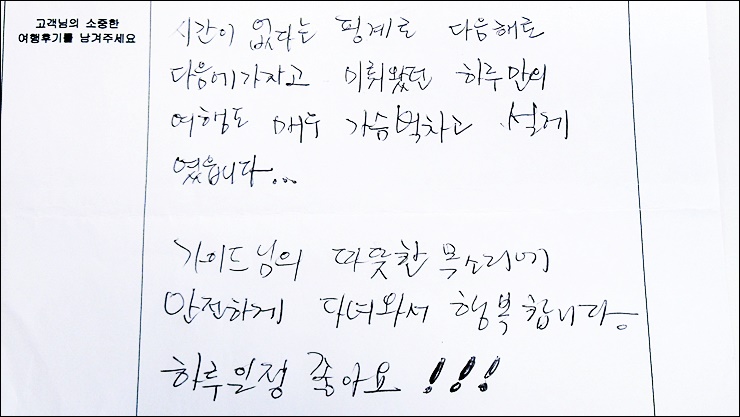 고객님의 소중한
여행후기를 남겨주세요
시간이 없다는 핑계로 다음해로
다음에가자고 미뤄왔던 하루만의
여행도 매우 가슴벅차고 설레
였읍니다...
가이드님의 따뜻한 목소리에
안전하게 다녀와서 행복합니다.
하루일정 좋아요!!!